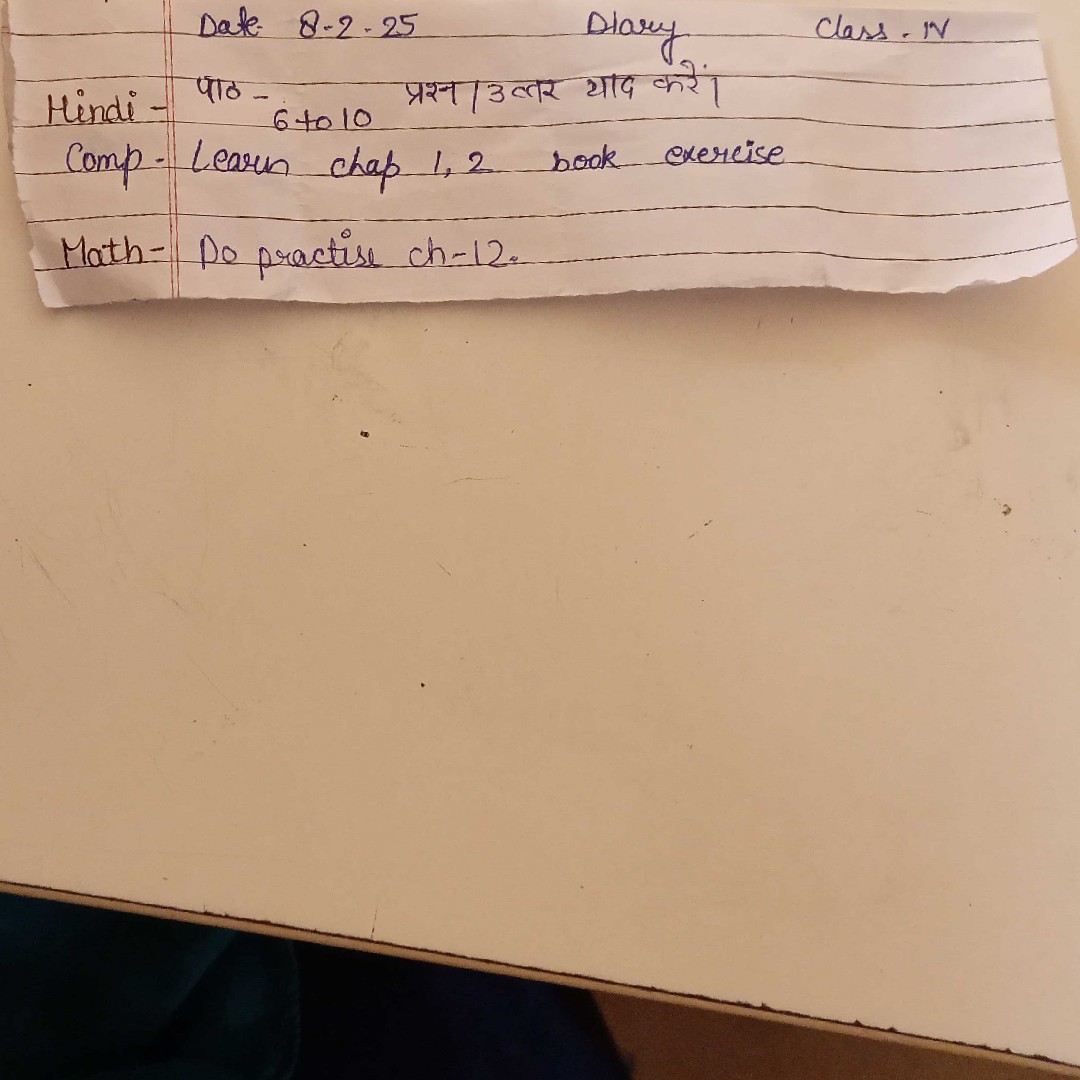 Date- 8-2-25 Diary Class. IV
Hindi - पाठ - 6 to 10 प्रश्न / उत्तर याद करें।
Comp - Learn chap 1, 2 book exercise
Math - Do practise ch-12.